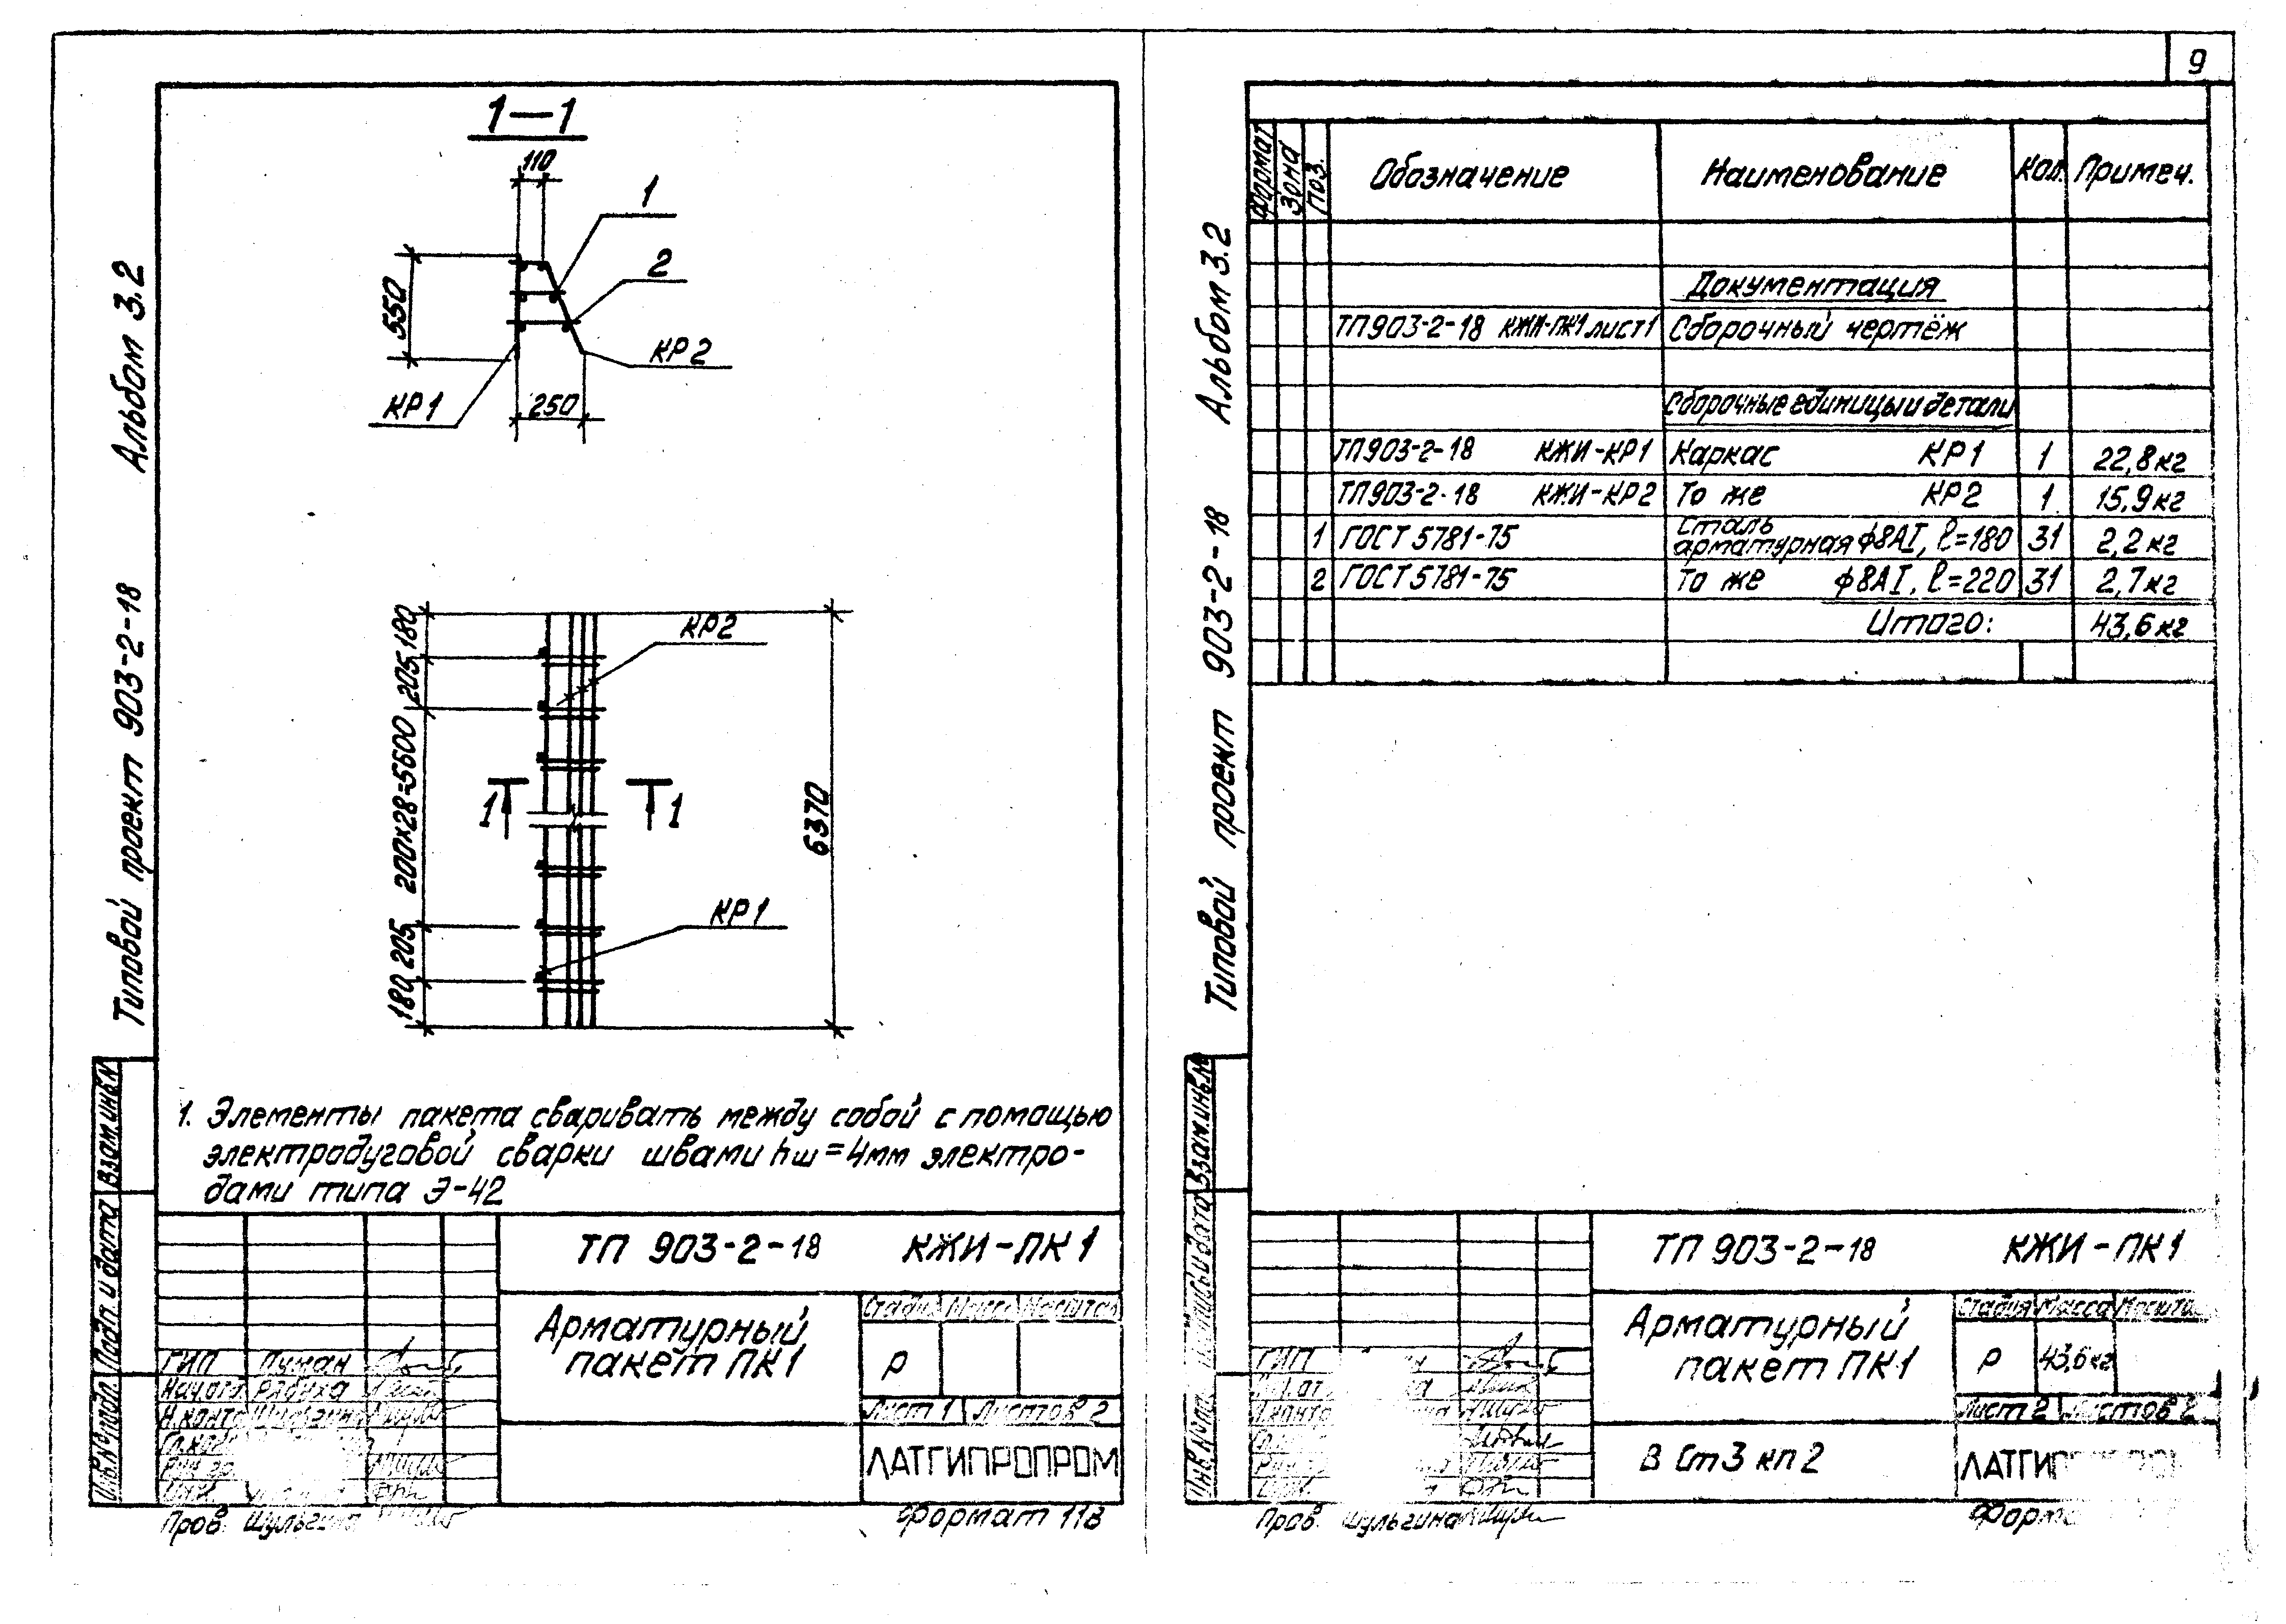 Альбом 3.2
Типовой проект 903-2-18
1—1
110
1
2
550
КР2
КР1
250
180
205
200×28=5600
205
180
КР2
1
1
6370
КР1
1. Элементы пакета сваривать между собой с помощью
электродуговой сварки швами hш=4мм электро-
дами типа Э-42
Взам.инв.№
Подп. и дата
Инв.№ подл.
ТП 903-2-18 КЖИ-ПК1
Арматурный
пакет ПК1
Стадия Масса Масштаб
Р
Лист 1 Листов 2
ЛАТГИПРОПРОМ
ГИП Пуман
Нач.отд. Рябуха
Н.конто
Пров. Шульгина
Формат 11В
9
Альбом 3.2
Типовой проект 903-2-18
Формат Зона Поз. Обозначение Наименование Кол. Примеч.
Документация
ТП903-2-18 КЖИ-ПК1 лист1 Сборочный чертёж
Сборочные единицы и детали
ТП903-2-18 КЖИ-КР1 Каркас КР1 1 22,8кг
ТП903-2-18 КЖИ-КР2 То же КР2 1 15,9кг
1 ГОСТ 5781-75 Сталь арматурная ф8АI, ℓ=180 31 2,2кг
2 ГОСТ 5781-75 То же ф8АI, ℓ=220 31 2,7кг
Итого: 43,6кг
Взам.инв.№
ТП 903-2-18 КЖИ-ПК1
Арматурный
пакет ПК1
Стадия Масса
Р 43,6кг
Лист 2 Листов 2
В Ст3 кп2
ГИП
Пров. Шульгина